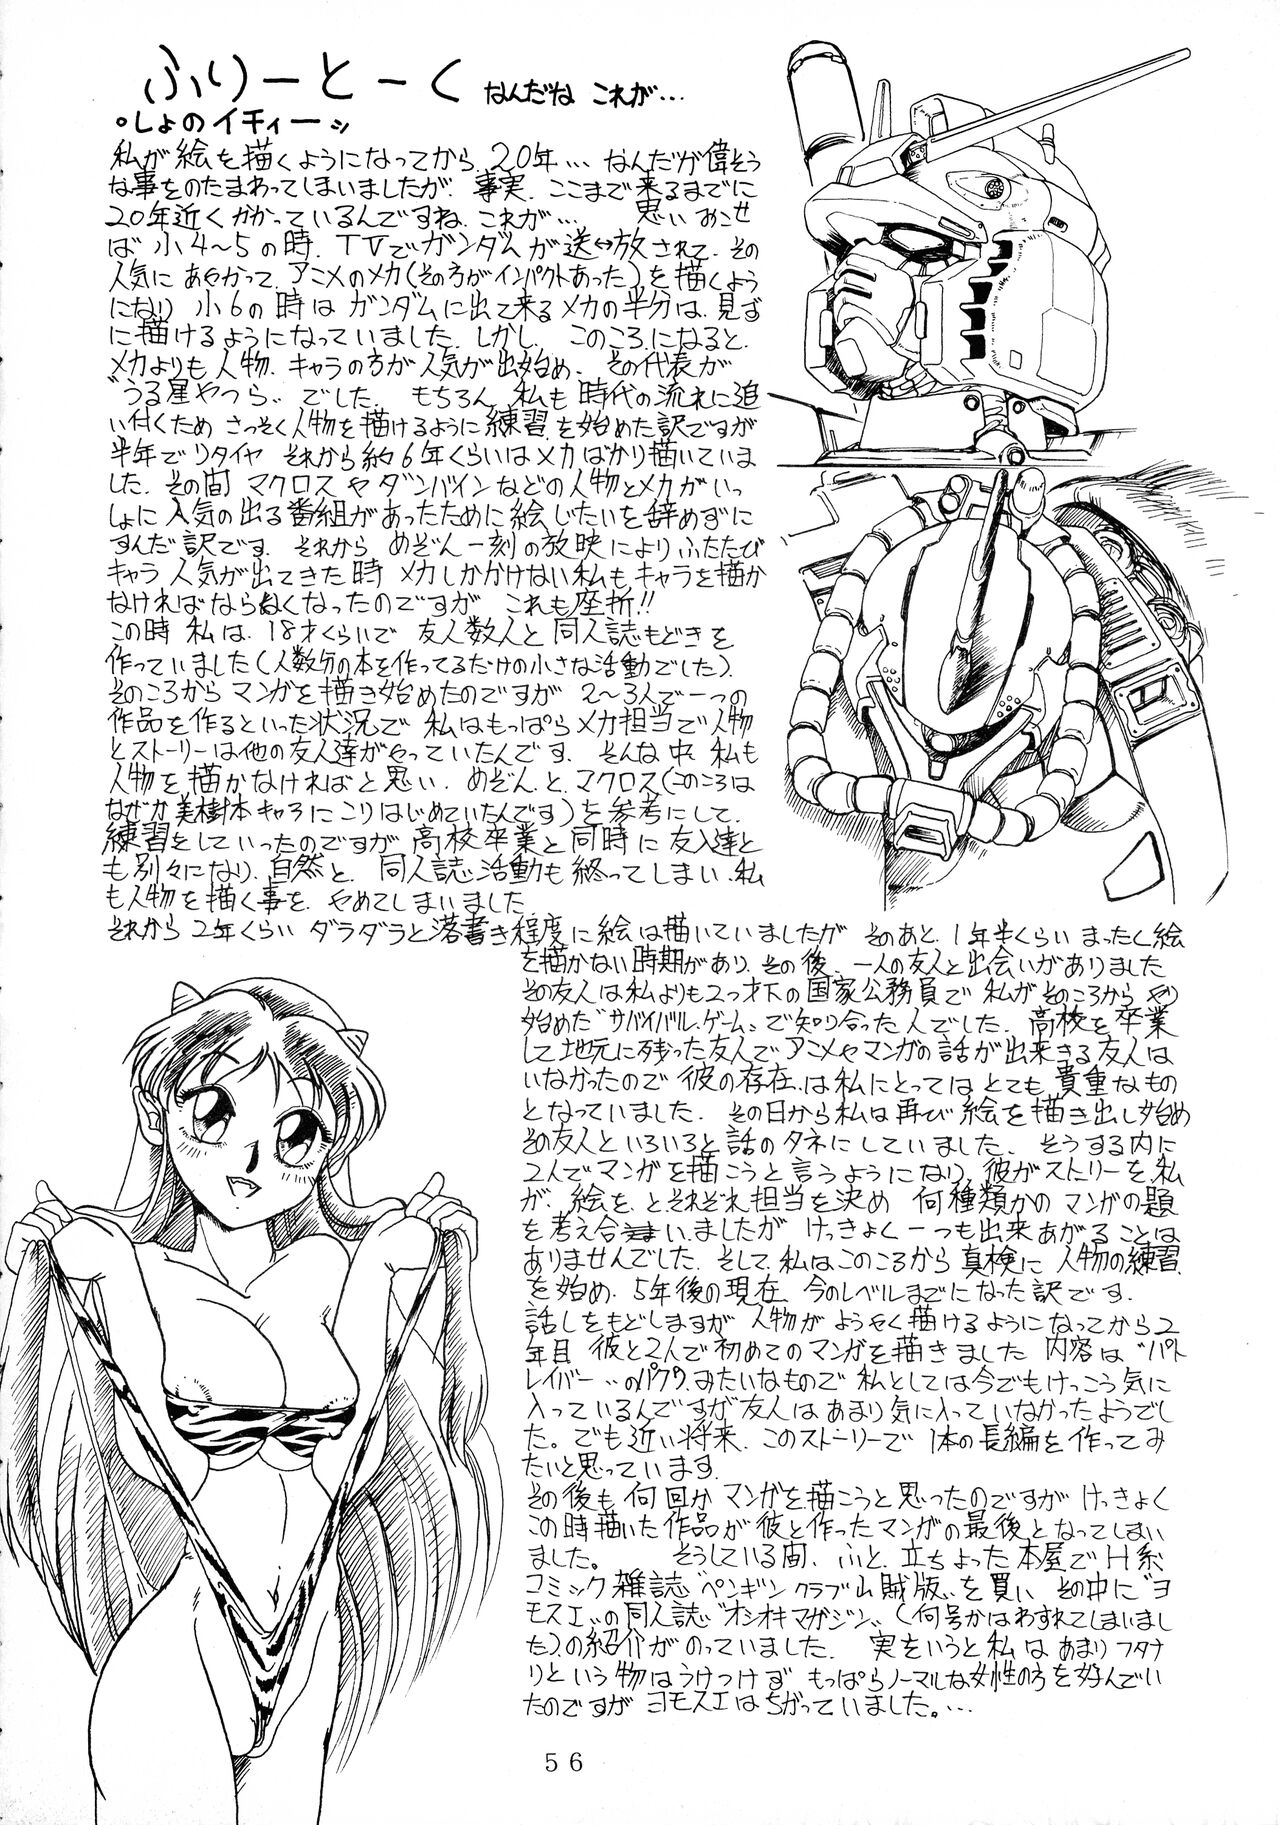 ふりーとーく なんだね これが…
・しょのイチィーッ
私が絵を描くようになってから、20年…なんだが偉そう
な事をのたまわってしまいましたが、事実、ここまで来るまでに
20年近くかかっているんですね、これが… 思いおこせ
ば小4〜5の時、TVでガンダムが送↔放されて、その
人気にあやかって、アニメのメカ(その方がインパクトあった)を描くよう
になり 小6の時はガンダムに出て来るメカの半分は、見ず
に描けるようになっていました。しかし、このころになると、
メカよりも人物、キャラの方が人気が出始め、その代表が
〝うる星やつら〟でした。もちろん、私も時代の流れに追
い付くため さっそく人物を描けるように練習を始めた訳ですが
半年でリタイヤ それから約6年くらいはメカばかり描いていま
した。その間 マクロスやダンバインなどの人物とメカがいっ
しょに人気の出る番組があったために絵じたいを辞めずに
すんだ訳です。それから めぞん一刻の放映によりふたたび
キャラ人気が出てきた時 メカしかかけない私もキャラを描か
なければならなくなったのですが これも座折!!
この時 私は、18才くらいで 友人数人と同人誌もどきを
作っていました(人数分の本を作ってるだけの小さな活動でした)。
そのころから マンガを描き始めたのですが 2〜3人で一つの
作品を作るといった状況で 私はもっぱらメカ担当で人物
とストーリーは他の友人達がやっていたんです。そんな中、私も
人物を描かなければと思い、めぞんと、マクロス(このころは
なぜか美樹本キャラにこりはじめていたんです)を参考にして、
練習をしていったのですが 高校卒業と同時に友人達と
も別々になり、自然と、同人誌活動も終ってしまい、私
も人物を描く事を、やめてしまいました
それから2年くらい ダラダラと落書き程度に絵は描いていましたが そのあと、1年半くらい まったく絵
を描かない時期があり、その後、一人の友人と出会いがありました
その友人は私よりも2つ才下の国家公務員で 私がそのころから やり
始めた〝サバイバル・ゲーム〟で知り合った人でした。高校を卒業
して地元に残った友人でアニメやマンガの話が出来きる友人は
いなかったので 彼の存在は私にとってはとても貴重なもの
となっていました。その日から私は再び絵を描き出し始め
その友人といろいろと話のタネにしていました。そうする内に
2人でマンガを描こうと言うようになり、彼がストーリーを、私
が、絵を、とそれぞれ担当を決め 何種類かのマンガの題
を考え合いましたが けっきょく一つも出来あがることは
ありませんでした。そして、私はこのころから真検に人物の練習
を始め、5年後の現在、今のレベルまでになった訳です。
話しをもどしますが 人物がようやく描けるようになってから2
年目 彼と2人で初めてのマンガを描きました 内容は〝パト
レイバー〟のパクりみたいなもので 私としては今でもけっこう気に
入っているんですが友人はあまり気に入っていなかったようでし
た。でも近い将来、このストーリーで1本の長編を作ってみ
たいと思っています。
その後も何回かマンガを描こうと思ったのですが けっきょく
この時描いた作品が彼と作ったマンガの最後となってしまい
ました。 そうしている間、ふと、立ちよった本屋でH系
コミック雑誌〝ペンギンクラブ山賊版〟を買い その中に〝ヨ
モスエ〟の同人誌〝オシオキマガジン〟(何号かはわすれてしまいまし
た)の紹介がのっていました。実をいうと私はあまりフタナ
リという物はうけつけず もっぱらノーマルな女性の方を好んでい
たのですが ヨモスエはちがっていました。…
56